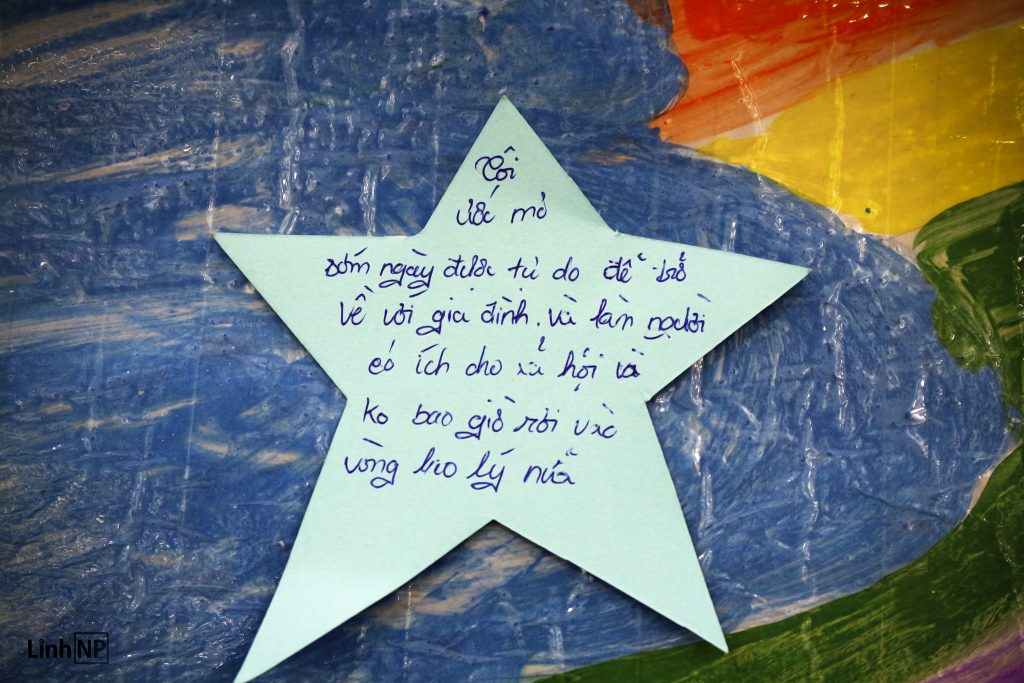 Tôi
ước mơ
sớm ngày được tự do để trở
Về với gia đình. và làn người
có ích cho xả hội và
ko bao giờ rơi vào
vòng lao lý nữa
Linh NP